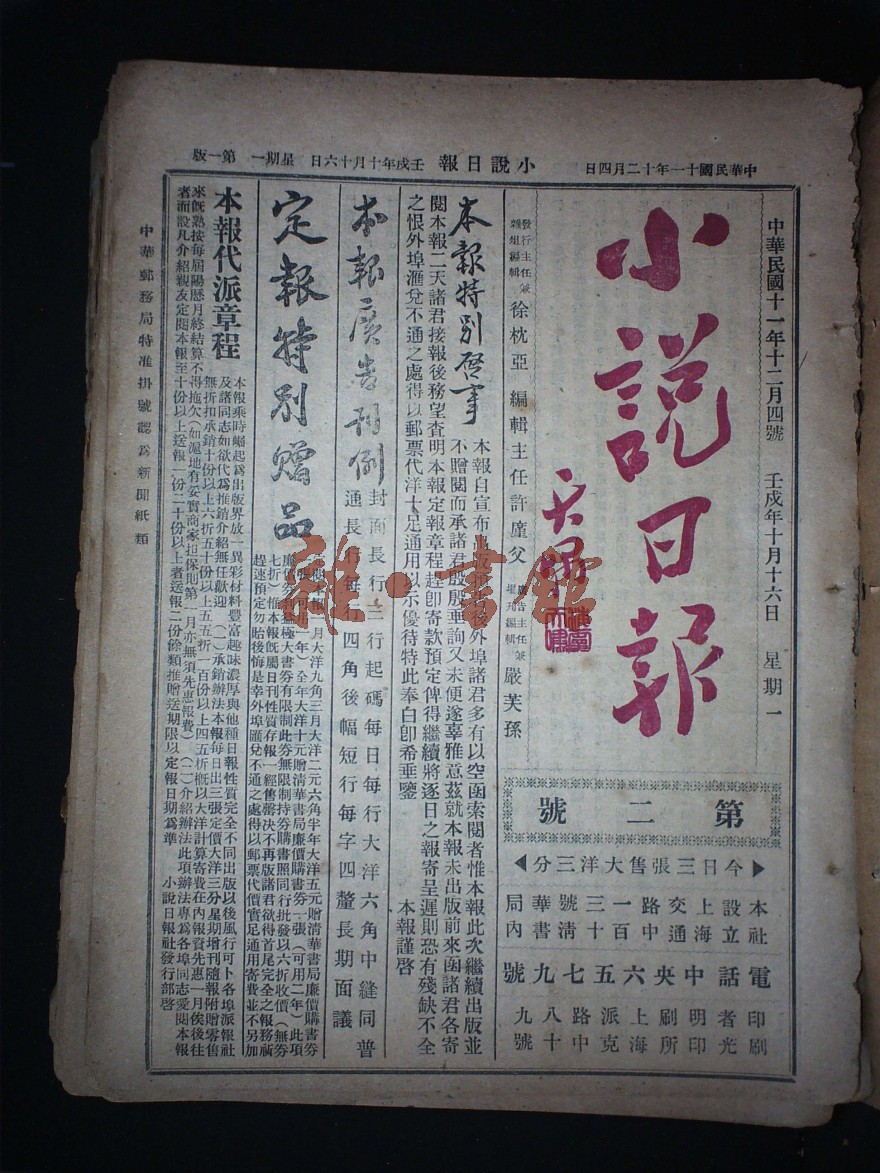 中華民國十一年十二月四日
小說日報
壬戌年十月十六日
星期一
第一版
中華民國十一年十二月四號 壬戌年十月十六日 星期一
小說日報
第二號
今日三張售大洋三分
本社設立上海交通路中一百三十號清華書局內
電話中央六五七九號
印刷者光明印刷所上海派克路中八十九號
發行主任兼雜俎編輯 徐枕亞 編輯主任許廑父 廣告主任兼增刊編輯 嚴芙孫
本報特別啓事
本報自宣布出版預告後外埠諸君多有以空函索閱者惟本報此次繼續出版並
不贈閱而承諸君殷殷垂詢又未便遂辜雅意茲就本報未出版前來函諸君各寄
閱本報二天諸君接報後務望查明本報定報章程趕卽寄款預定俾得繼續將逐日之報寄呈遲則恐有殘缺不全
之恨外埠滙兌不通之處得以郵票代洋十足通用以示優待特此奉白卽希垂鑒 本報謹啓
本報廣告刊例
封面長行三行起碼每日每行大洋六角中縫同普
通長行每行四角後幅短行每字四釐長期面議
定報特別贈品
月大洋九角三月大洋二元六角半年大洋五元贈清華書局廉價購書劵
一張(可用一年)全年大洋十元贈清華書局廉價購書劵一張(可用二年)此項
廉價劵利益極大書劵有限制此劵無限制持劵購書照同行批發以六折收價(無劵
七折)惟本報旣屬日刊性質存報一經售罄決不再版諸君欲得首尾完全之報務祈
趕速預定勿貽後悔是幸外埠匯兌不通之處得以郵票代價實足通用寄費並不另加
本報代派章程
本報乘時崛起爲出版界放一異彩材料豐富趣味濃厚與他種日報性質完全不同出版以後風行可卜各埠派報社
及諸同志如欲代爲推銷介紹無任歡迎(一)承銷辦法本報每日出三張定價大洋三分星期增刊隨報附贈零售
無折扣承銷十份以上六折五十份以上五五折一百份以上四五折概以大洋計算寄費在內報資先惠一月俟後往
來旣熟按每屆陽歷月終結算不得拖欠(如滬地有妥實商家担保則第一月亦無須先惠報費)(二)介紹辦法此項辦法專爲各埠同志愛閱本報
者而設凡介紹親友定閱本報至十份以上送報一份二十份以上者送報二份餘類推贈送期限以定報日期爲準 小說日報社發行部啓
中華郵務局特准掛號認爲新聞紙類
雜·書館